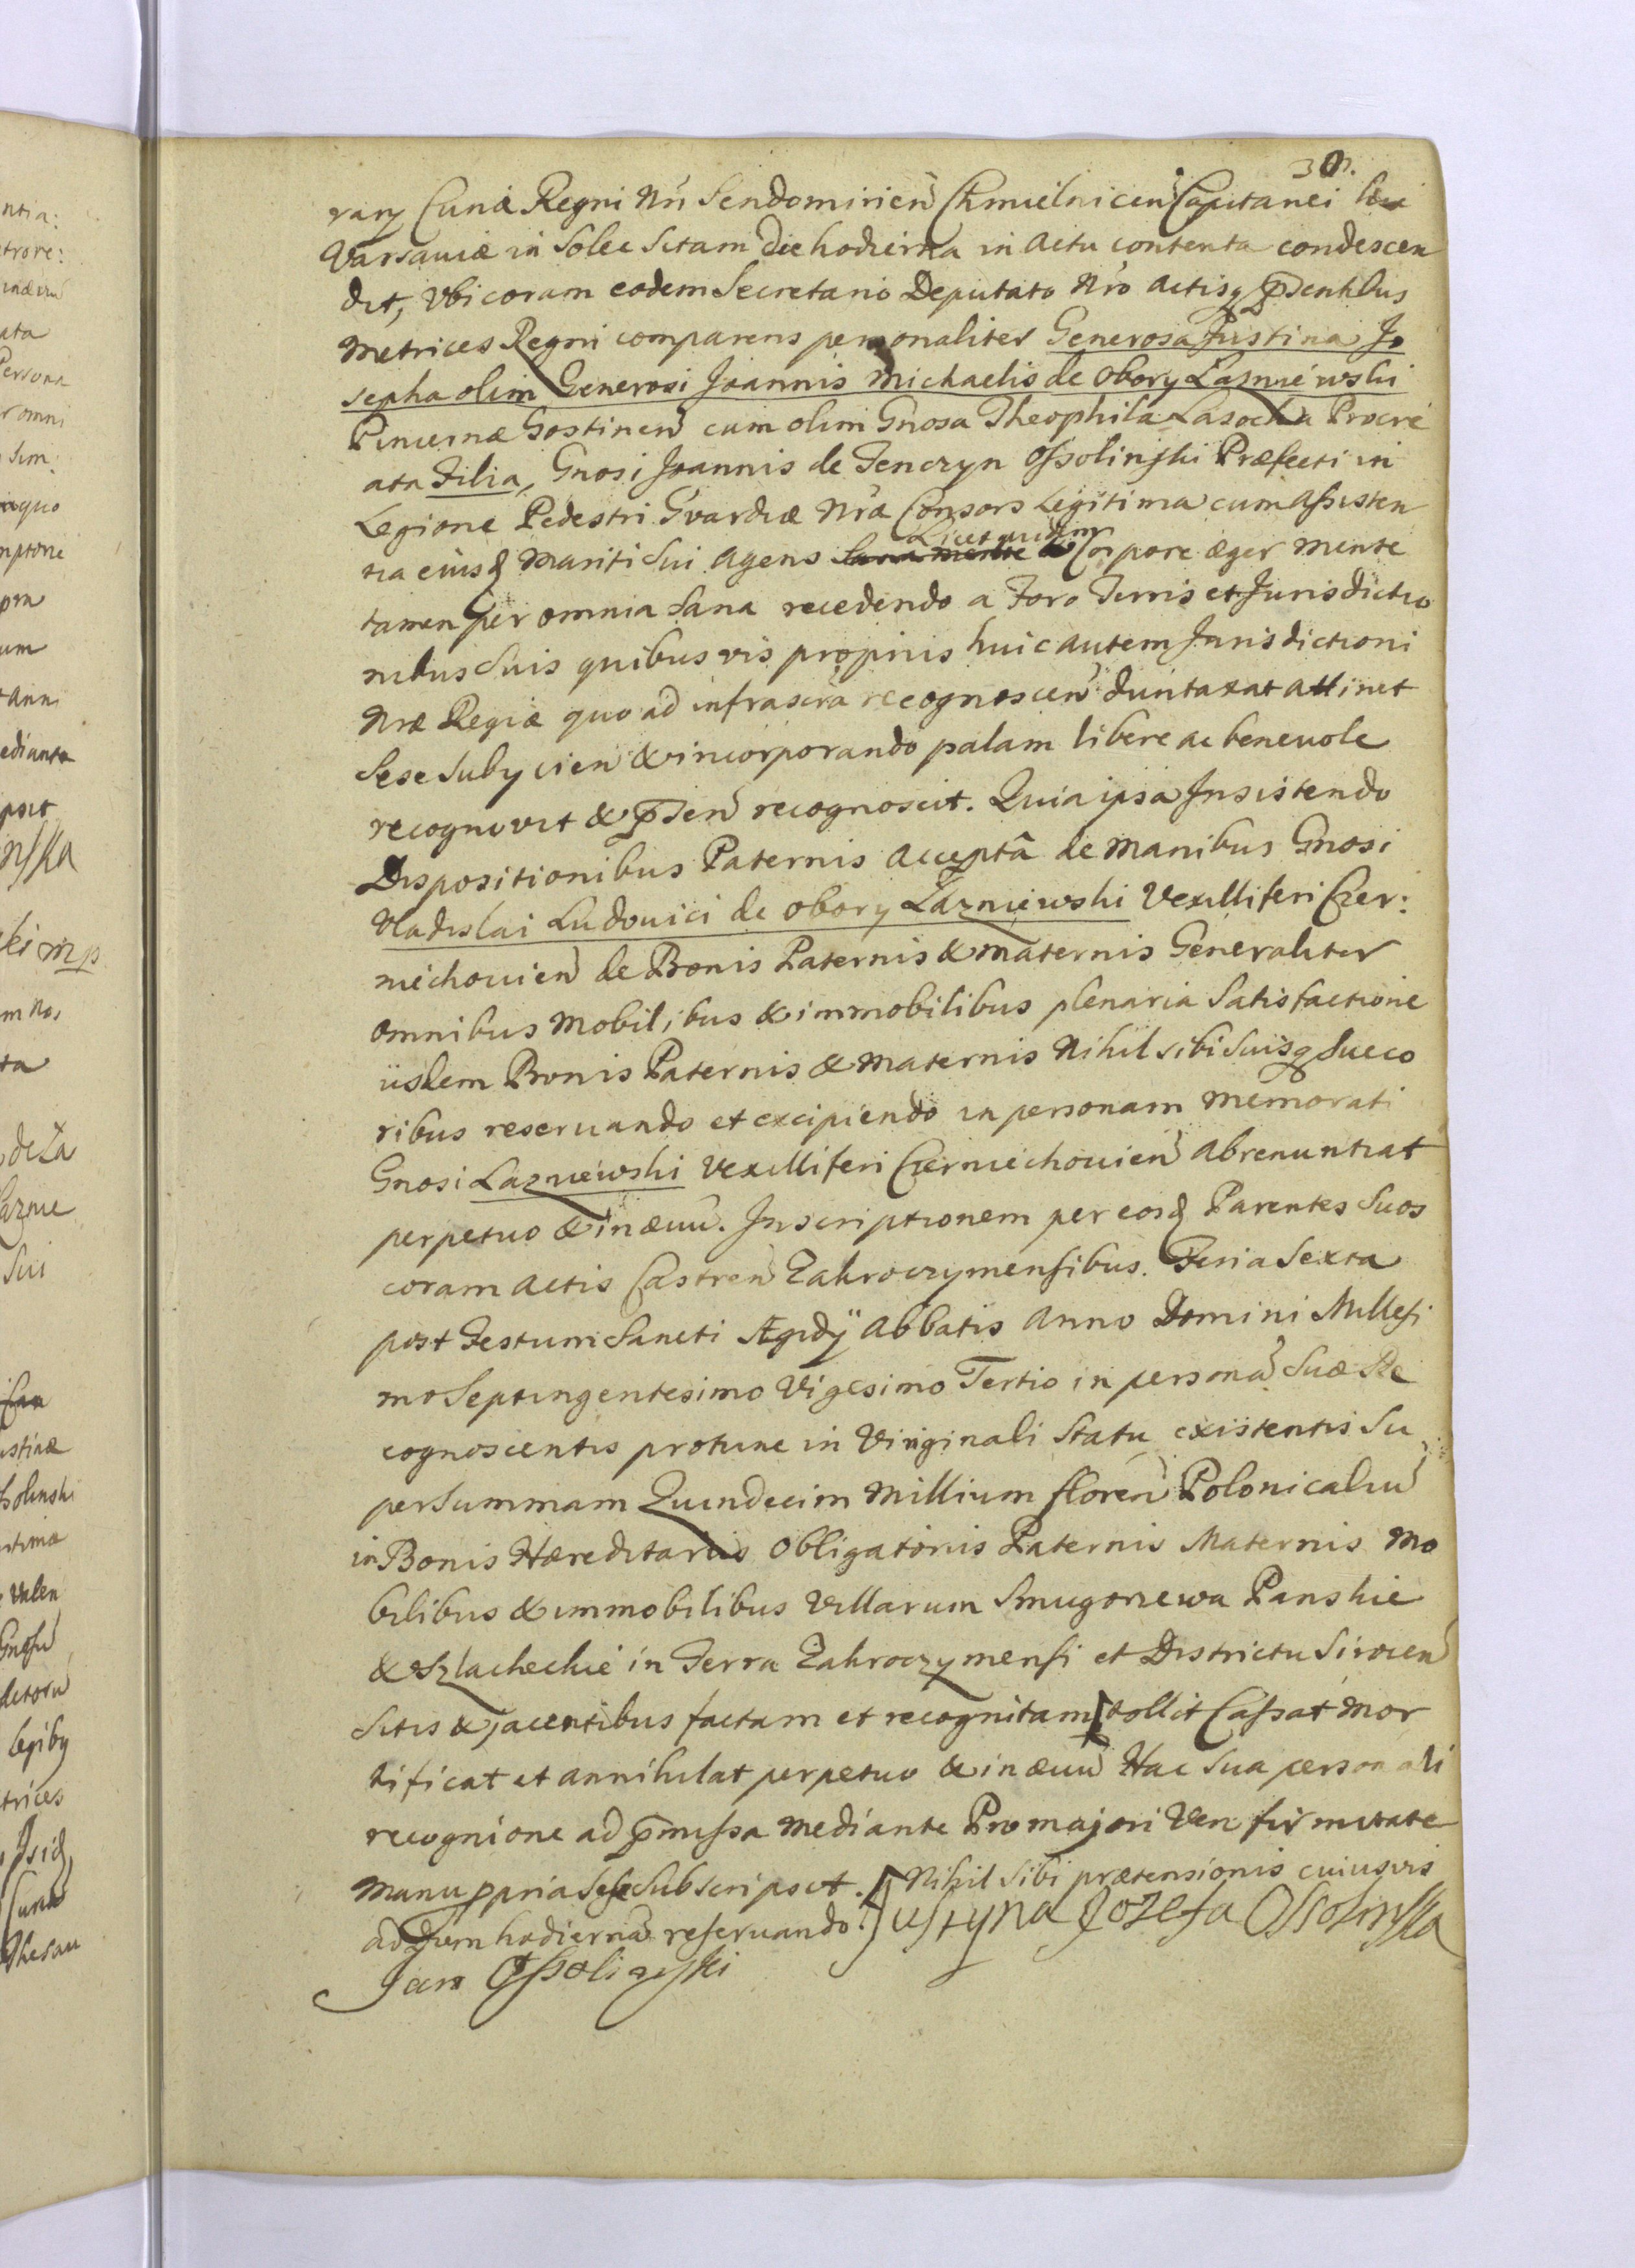 rarÿ Curiæ Regni Nri Sendomirien Chmielnicen Capitanei
Varsaviæ in Solec Sitam die hodierna in actu contenta condescen
dit, Ubi coram eodem Secretario Deputato Nro Actisq pdentibus
Metrices Regni comparens personaliter Generosa Justina Jo
sepha olim Generosi Joannis Michaelis de Obory Łazniewski
Pincernæ Gostinen cum olim Gnosa Theophila Lasocka Procre
ata Filia, Gnosi Joannis de Tenczyn Ossolinski Præfecti in
Legione Pedestri Gvardiæ Nræ Consors Legitima cum Assisten
tia eiusd Mariti Sui Agens Licet quidem Corpore æger mente
tamen per omnia Sana recedendo a Foro Terris et Jurisdictio
nibus Suis quibusvis proprijs huic autem Jurisdictioni
Nræ Regiæ quo ad infrascra recognoscen duntaxat attinet
Sese Subÿcien & incorporando palam libere ac benevole
recognovit & pden recognoscit. Quia ipsa Insistendo
Dispositionibus Paternis acceptâ de Manibus Gnosi
Vladislai Ludovici de Obory Łazniewski Vexilliferi Czer:
niechovien de Bonis Paternis & Maternis Generaliter
omnibus Mobilibus & immobilibus plenaria Satisfactione
iisdem Bonis Paternis & Maternis Nihil sibi Suisq Succe
ribus reservando et excipiendo in personam Memorati
Gnosi Łazniewski Vexilliferi Czerniechovien Abrenuntiat
perpetuo & in ævu. Inscriptionem per eosd Parentes Suos
coram Actis Castren Zakroczymensibus. Feria Sexta
post Festum Sancti Ægidÿ Abbatis Anno Domini Millesi
mo Septingentesimo Vigesimo Tertio in persona Suæ Re
cognoscentis protunc in Virginali Statu existentis Su
per Summam Quindecim Millium floren Polonicaliu
in Bonis Hæreditarijs Obligatorijs Paternis Maternis Mo
bilibus & immobilibus Villarum Smugorzewa Panskie
& Szlacheckie in Terra Zakroczymensi et Districtu Sirocen
Sitis & jacentibus factam et recognitam tollit Cassat Mor
tificat et annihilat perpetuo & in ævu Hac Sua personali
recognione ad pmissa Mediante Pro majori Vero firmitate
Manu ppria Sese Subscripsit. Nihil Sibi prætensionis cuiusvis
ad Diem hodierna reservando. Justyna Jozefa Ossolinska
Jan Ossolinski